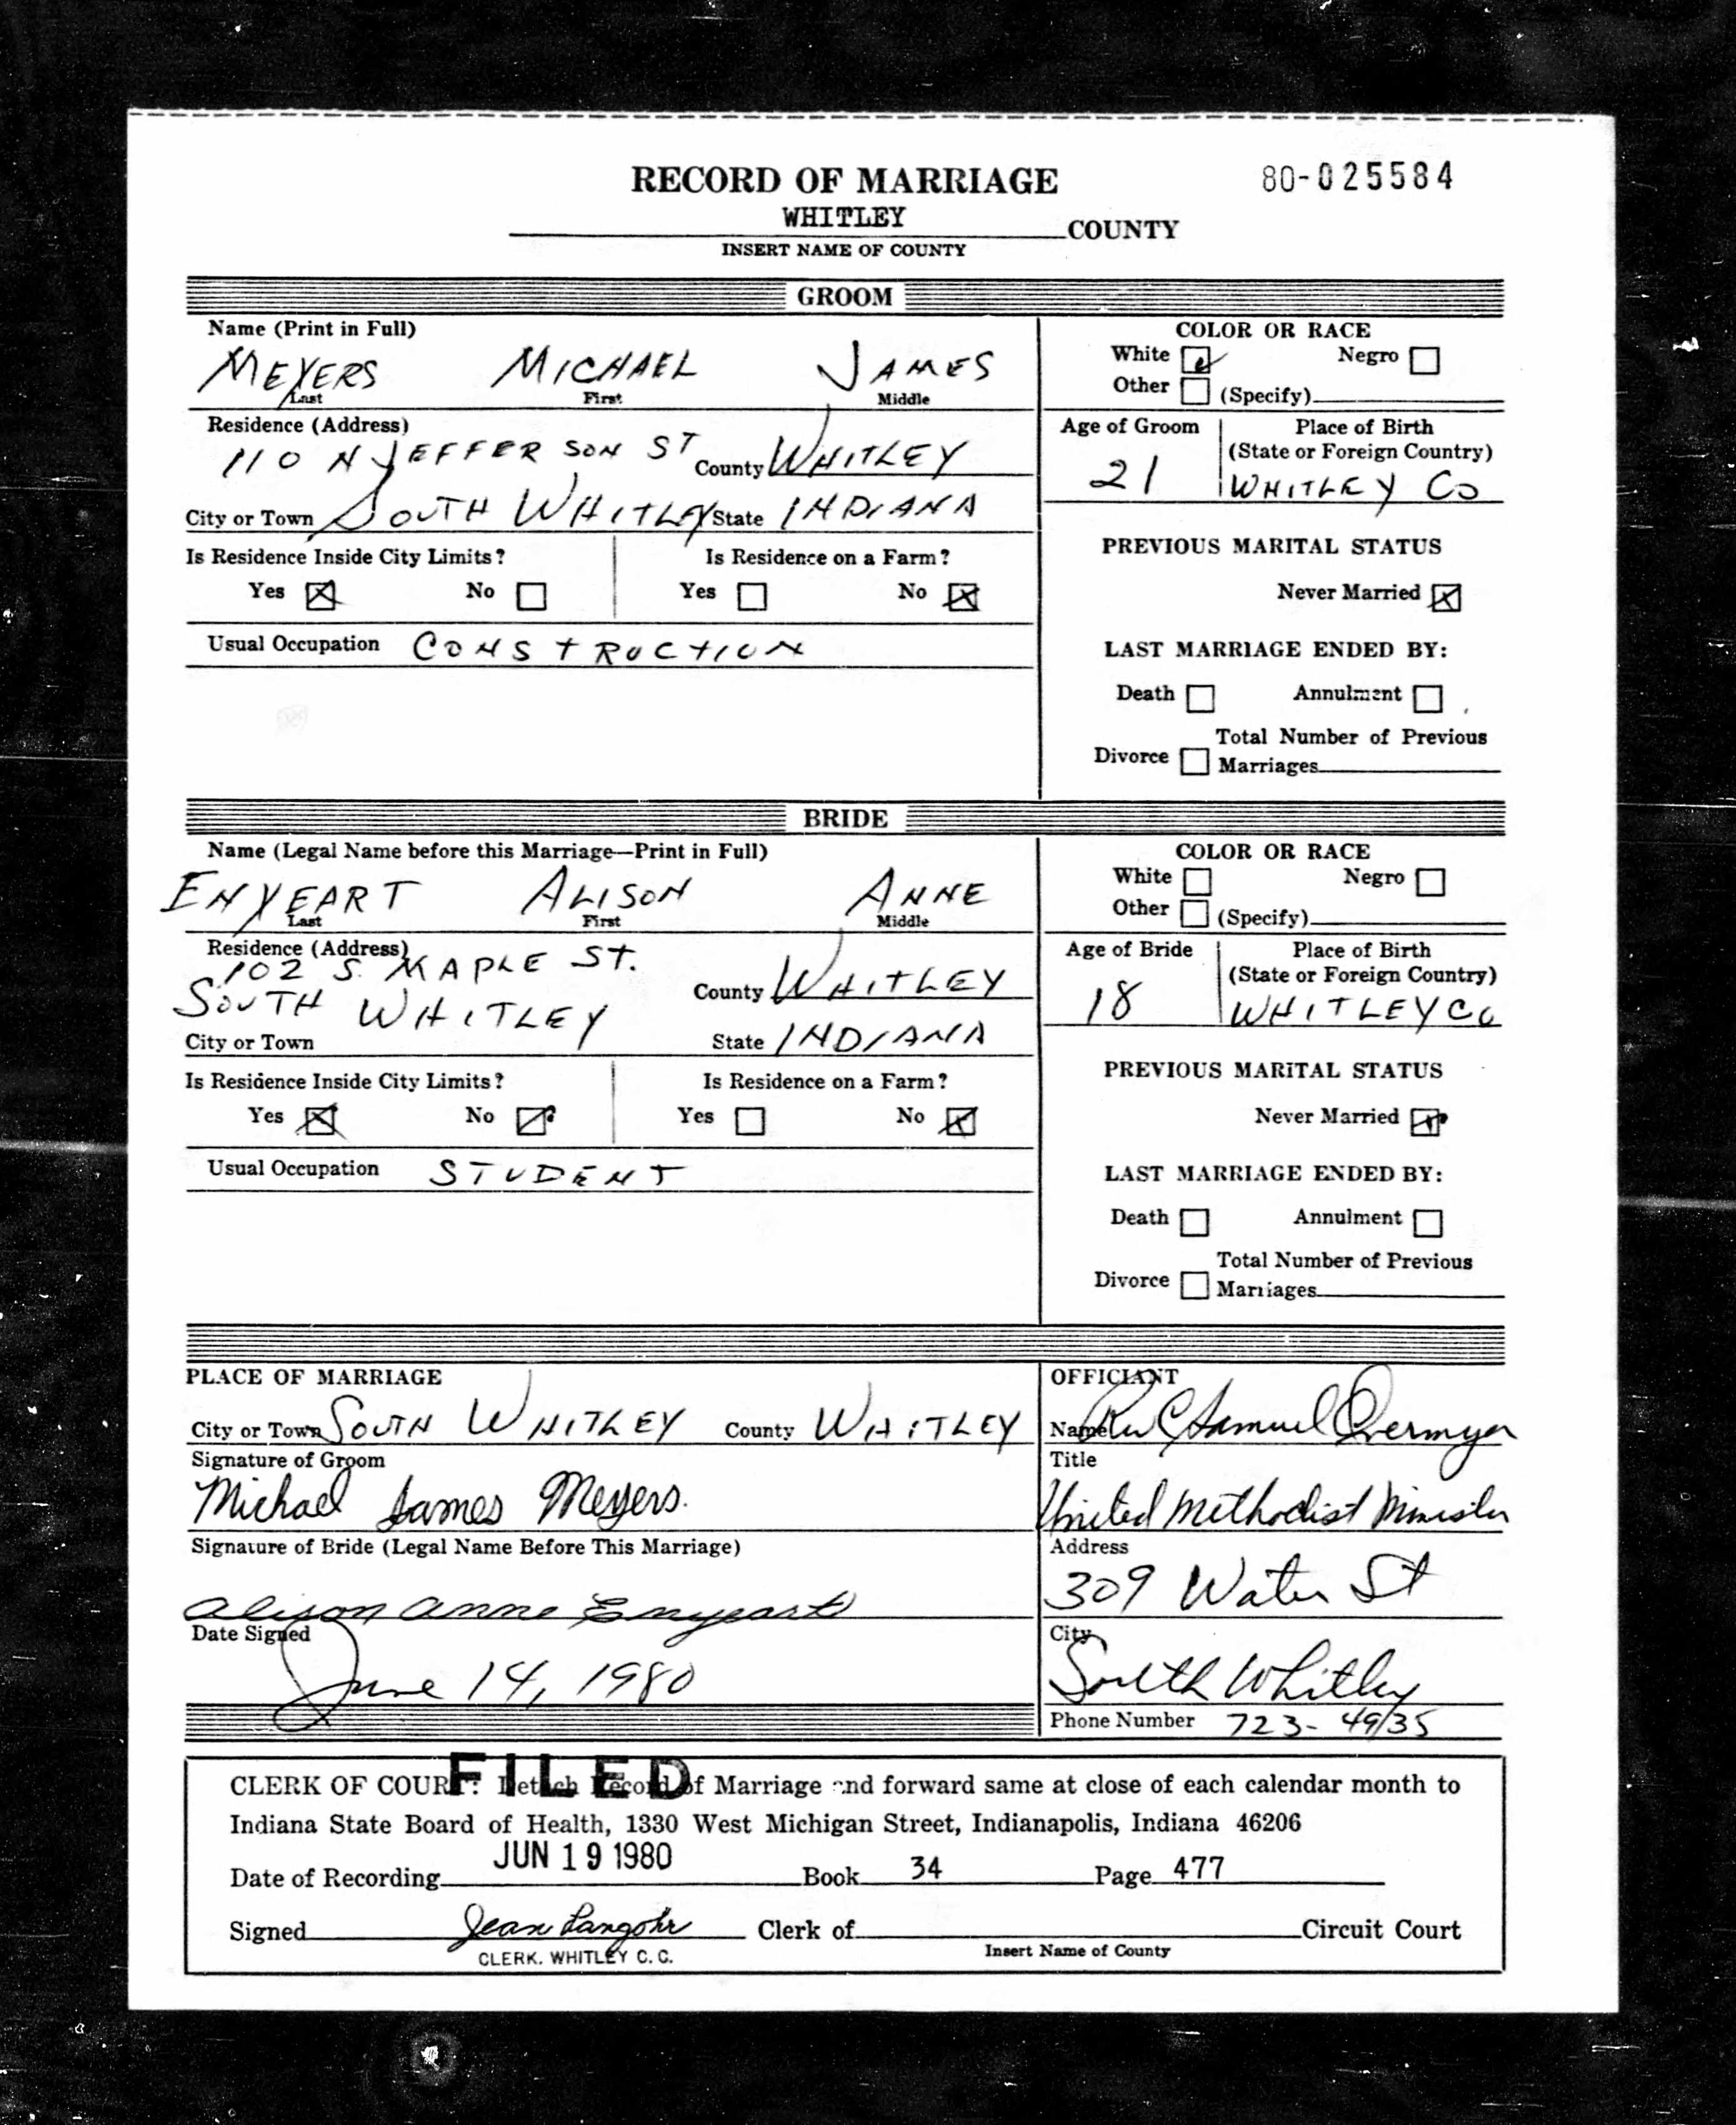 RECORD OF MARRIAGE 80-025584
WHITLEY COUNTY
INSERT NAME OF COUNTY
GROOM
Name (Print in Full)
MEYERS MICHAEL JAMES
Last First Middle
COLOR OR RACE
White ☑ Negro ☐
Other ☐ (Specify)
Residence (Address)
110 N JEFFERSON ST County WHITLEY
City or Town SOUTH WHITLEY State INDIANA
Age of Groom Place of Birth
(State or Foreign Country)
21 WHITLEY CO
Is Residence Inside City Limits? Is Residence on a Farm?
Yes ☒ No ☐ Yes ☐ No ☒
Usual Occupation CONSTRUCTION
PREVIOUS MARITAL STATUS
Never Married ☒
LAST MARRIAGE ENDED BY:
Death ☐ Annulment ☐
Total Number of Previous
Divorce ☐ Marriages
BRIDE
Name (Legal Name before this Marriage—Print in Full)
ENYEART ALISON ANNE
Last First Middle
COLOR OR RACE
White ☐ Negro ☐
Other ☐ (Specify)
Residence (Address)
102 S. MAPLE ST.
SOUTH WHITLEY County WHITLEY
City or Town State INDIANA
Age of Bride Place of Birth
(State or Foreign Country)
18 WHITLEY CO
Is Residence Inside City Limits? Is Residence on a Farm?
Yes ☒ No ☑ Yes ☐ No ☒
Usual Occupation STUDENT
PREVIOUS MARITAL STATUS
Never Married ☒
LAST MARRIAGE ENDED BY:
Death ☐ Annulment ☐
Total Number of Previous
Divorce ☐ Marriages
PLACE OF MARRIAGE
City or Town SOUTH WHITLEY County WHITLEY
Signature of Groom
Michael James Meyers.
Signature of Bride (Legal Name Before This Marriage)
Alison Anne Enyeart
Date Signed
June 14, 1980
OFFICIANT
Name Rev C Samuel Overmyer
Title
United Methodist Minister
Address
309 Water St
City
South Whitley
Phone Number 723-4935
FILED
CLERK OF COURT: Detach Record of Marriage and forward same at close of each calendar month to
Indiana State Board of Health, 1330 West Michigan Street, Indianapolis, Indiana 46206
Date of Recording JUN 19 1980 Book 34 Page 477
Signed Jean Langohr Clerk of Circuit Court
CLERK. WHITLEY C. C. Insert Name of County